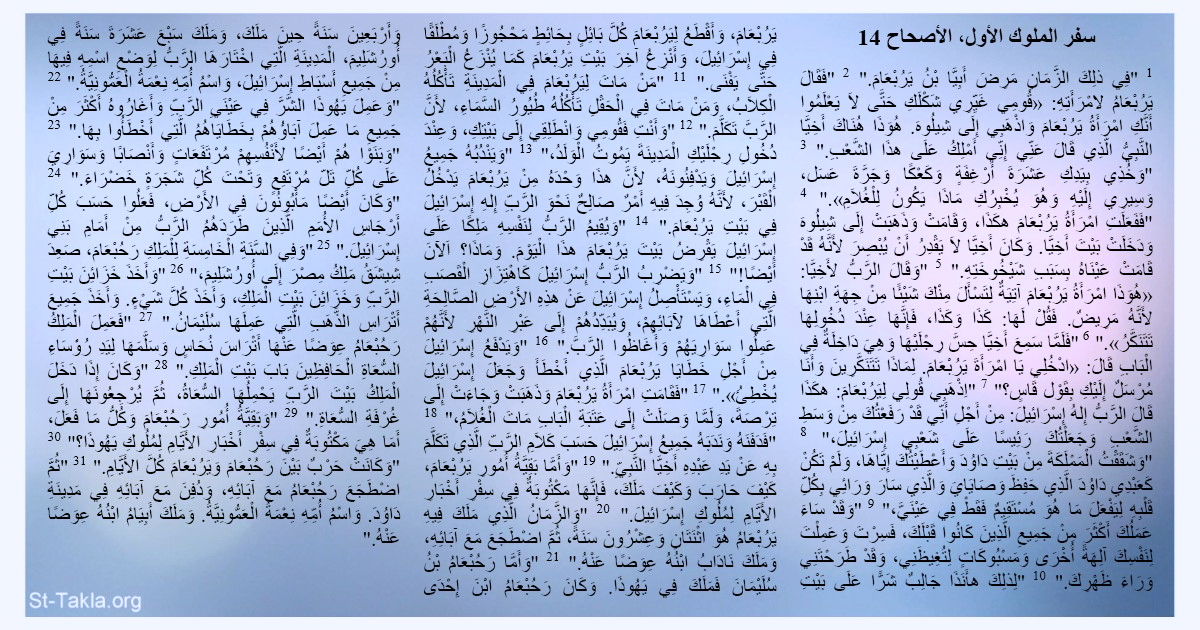 سفر الملوك الأول، الأصحاح 14
1 "فِي ذلِكَ الزَّمَانِ مَرِضَ أَبِيَّا بْنُ يَرُبْعَامَ." 2 "فَقَالَ
يَرُبْعَامُ لامْرَأَتِهِ: «قُومِي غَيِّرِي شَكْلَكِ حَتَّى لاَ يَعْلَمُوا
أَنَّكِ امْرَأَةُ يَرُبْعَامَ وَاذْهَبِي إِلَى شِيلُوهَ. هُوَذَا هُنَاكَ أَخِيَّا
النَّبِيُّ الَّذِي قَالَ عَنِّي إِنِّي أَمْلِكُ عَلَى هذَا الشَّعْبِ." 3
"وَخُذِي بِيَدِكِ عَشَرَةَ أَرْغِفَةٍ وَكَعْكًا وَجَرَّةَ عَسَل،
وَسِيرِي إِلَيْهِ وَهُوَ يُخْبِرُكِ مَاذَا يَكُونُ لِلْغُلاَمِ»." 4
"فَفَعَلَتِ امْرَأَةُ يَرُبْعَامَ هكَذَا، وَقَامَتْ وَذَهَبَتْ إِلَى شِيلُوهَ
وَدَخَلَتْ بَيْتَ أَخِيَّا. وَكَانَ أَخِيَّا لاَ يَقْدِرُ أَنْ يُبْصِرَ لأَنَّهُ قَدْ
قَامَتْ عَيْنَاهُ بِسَبَبِ شَيْخُوخَتِهِ." 5 "وَقَالَ الرَّبُّ لأَخِيَّا:
«هُوَذَا امْرَأَةُ يَرُبْعَامَ آتِيَةٌ لِتَسْأَلَ مِنْكَ شَيْئًا مِنْ جِهَةِ ابْنِهَا
لأَنَّهُ مَرِيضٌ. فَقُلْ لَهَا: كَذَا وَكَذَا، فَإِنَّهَا عِنْدَ دُخُولِهَا
تَتَنَكَّرُ»." 6 "فَلَمَّا سَمِعَ أَخِيَّا حِسَّ رِجْلَيْهَا وَهِيَ دَاخِلَةٌ فِي
الْبَابِ قَالَ: «ادْخُلِي يَا امْرَأَةَ يَرُبْعَامَ. لِمَاذَا تَتَنَكَّرِينَ وَأَنَا
مُرْسَلٌ إِلَيْكِ بِقَوْل قَاسٍ؟" 7 "اِذْهَبِي قُولِي لِيَرُبْعَامَ: هكَذَا
قَالَ الرَّبُّ إِلهُ إِسْرَائِيلَ: مِنْ أَجْلِ أَنِّي قَدْ رَفَعْتُكَ مِنْ وَسَطِ
الشَّعْبِ وَجَعَلْتُكَ رَئِيسًا عَلَى شَعْبِي إِسْرَائِيلَ،" 8
"وَشَقَقْتُ الْمَمْلَكَةَ مِنْ بَيْتِ دَاوُدَ وَأَعْطَيْتُكَ إِيَّاهَا، وَلَمْ تَكُنْ
كَعَبْدِي دَاوُدَ الَّذِي حَفِظَ وَصَايَايَ وَالَّذِي سَارَ وَرَائِي بِكُلِّ
قَلْبِهِ لِيَفْعَلَ مَا هُوَ مُسْتَقِيمٌ فَقَطْ فِي عَيْنَيَّ،" 9 "وَقَدْ سَاءَ
عَمَلُكَ أَكْثَرَ مِنْ جَمِيعِ الَّذِينَ كَانُوا قَبْلَكَ، فَسِرْتَ وَعَمِلْتَ
لِنَفْسِكَ آلِهَةً أُخْرَى وَمَسْبُوكَاتٍ لِتُغِيظَنِي، وَقَدْ طَرَحْتَنِي
وَرَاءَ ظَهْرِكَ." 10 "لِذلِكَ هأَنَذَا جَالِبٌ شَرًّا عَلَى بَيْتِ
يَرُبْعَامَ، وَأَقْطَعُ لِيَرُبْعَامَ كُلَّ بَائِلٍ بِحَائِطٍ مَحْجُوزًا وَمُطْلَقًا
فِي إِسْرَائِيلَ، وَأَنْزِعُ آخِرَ بَيْتِ يَرُبْعَامَ كَمَا يُنْزَعُ الْبَعْرُ
حَتَّى يَفْنَى." 11 "مَنْ مَاتَ لِيَرُبْعَامَ فِي الْمَدِينَةِ تَأْكُلُهُ
الْكِلاَبُ، وَمَنْ مَاتَ فِي الْحَقْلِ تَأْكُلُهُ طُيُورُ السَّمَاءِ، لأَنَّ
الرَّبَّ تَكَلَّمَ." 12 "وَأَنْتِ فَقُومِي وَانْطَلِقِي إِلَى بَيْتِكِ، وَعِنْدَ
دُخُولِ رِجْلَيْكِ الْمَدِينَةَ يَمُوتُ الْوَلَدُ،" 13 "وَيَنْدُبُهُ جَمِيعُ
إِسْرَائِيلَ وَيَدْفِنُونَهُ، لأَنَّ هذَا وَحْدَهُ مِنْ يَرُبْعَامَ يَدْخُلُ
الْقَبْرَ، لأَنَّهُ وُجِدَ فِيهِ أَمْرٌ صَالِحٌ نَحْوَ الرَّبِّ إِلهِ إِسْرَائِيلَ
فِي بَيْتِ يَرُبْعَامَ." 14 "وَيُقِيمُ الرَّبُّ لِنَفْسِهِ مَلِكًا عَلَى
إِسْرَائِيلَ يَقْرِضُ بَيْتَ يَرُبْعَامَ هذَا الْيَوْمَ. وَمَاذَا؟ اَلآنَ
أَيْضًا!" 15 "وَيَضْرِبُ الرَّبُّ إِسْرَائِيلَ كَاهْتِزَازِ الْقَصَبِ
فِي الْمَاءِ، وَيَسْتَأْصِلُ إِسْرَائِيلَ عَنْ هذِهِ الأَرْضِ الصَّالِحَةِ
الَّتِي أَعْطَاهَا لآبَائِهِمْ، وَيُبَدِّدُهُمْ إِلَى عَبْرِ النَّهْرِ لأَنَّهُمْ
عَمِلُوا سَوَارِيَهُمْ وَأَغَاظُوا الرَّبَّ." 16 "وَيَدْفَعُ إِسْرَائِيلَ
مِنْ أَجْلِ خَطَايَا يَرُبْعَامَ الَّذِي أَخْطَأَ وَجَعَلَ إِسْرَائِيلَ
يُخْطِئُ»." 17 "فَقَامَتِ امْرَأَةُ يَرُبْعَامَ وَذَهَبَتْ وَجَاءَتْ إِلَى
تِرْصَةَ، وَلَمَّا وَصَلَتْ إِلَى عَتَبَةِ الْبَابِ مَاتَ الْغُلاَمُ،" 18
"فَدَفَنَهُ وَنَدَبَهُ جَمِيعُ إِسْرَائِيلَ حَسَبَ كَلاَمِ الرَّبِّ الَّذِي تَكَلَّمَ
بِهِ عَنْ يَدِ عَبْدِهِ أَخِيَّا النَّبِيِّ." 19 "وَأَمَّا بَقِيَّةُ أُمُورِ يَرُبْعَامَ،
كَيْفَ حَارَبَ وَكَيْفَ مَلَكَ، فَإِنَّهَا مَكْتُوبَةٌ فِي سِفْرِ أَخْبَارِ
الأَيَّامِ لِمُلُوكِ إِسْرَائِيلَ." 20 "وَالزَّمَانُ الَّذِي مَلَكَ فِيهِ
يَرُبْعَامُ هُوَ اثْنَتَانِ وَعِشْرُونَ سَنَةً، ثُمَّ اضْطَجَعَ مَعَ آبَائِهِ،
وَمَلَكَ نَادَابُ ابْنُهُ عِوَضًا عَنْهُ." 21 "وَأَمَّا رَحُبْعَامُ بْنُ
سُلَيْمَانَ فَمَلَكَ فِي يَهُوذَا. وَكَانَ رَحُبْعَامُ ابْنَ إِحْدَى
وَأَرْبَعِينَ سَنَةً حِينَ مَلَكَ، وَمَلَكَ سَبْعَ عَشَرَةَ سَنَةً فِي
أُورُشَلِيمَ، الْمَدِينَةِ الَّتِي اخْتَارَهَا الرَّبُّ لِوَضْعِ اسْمِهِ فِيهَا
مِنْ جَمِيعِ أَسْبَاطِ إِسْرَائِيلَ، وَاسْمُ أُمِّهِ نِعْمَةُ الْعَمُّونِيَّةُ." 22
"وَعَمِلَ يَهُوذَا الشَّرَّ فِي عَيْنَيِ الرَّبِّ وَأَغَارُوهُ أَكْثَرَ مِنْ
جَمِيعِ مَا عَمِلَ آبَاؤُهُمْ بِخَطَايَاهُمُ الَّتِي أَخْطَأُوا بِهَا." 23
"وَبَنَوْا هُمْ أَيْضًا لأَنْفُسِهِمْ مُرْتَفَعَاتٍ وَأَنْصَابًا وَسَوَارِيَ
عَلَى كُلِّ تَلٍّ مُرْتَفِعٍ وَتَحْتَ كُلِّ شَجَرَةٍ خَضْرَاءَ." 24
"وَكَانَ أَيْضًا مَأْبُونُونَ فِي الأَرْضِ، فَعَلُوا حَسَبَ كُلِّ
أَرْجَاسِ الأُمَمِ الَّذِينَ طَرَدَهُمُ الرَّبُّ مِنْ أَمَامِ بَنِي
إِسْرَائِيلَ." 25 "وَفِي السَّنَةِ الْخَامِسَةِ لِلْمَلِكِ رَحُبْعَامَ، صَعِدَ
شِيشَقُ مَلِكُ مِصْرَ إِلَى أُورُشَلِيمَ،" 26 "وَأَخَذَ خَزَائِنَ بَيْتِ
الرَّبِّ وَخَزَائِنَ بَيْتِ الْمَلِكِ، وَأَخَذَ كُلَّ شَيْءٍ. وَأَخَذَ جَمِيعَ
أَتْرَاسِ الذَّهَبِ الَّتِي عَمِلَهَا سُلَيْمَانُ." 27 "فَعَمِلَ الْمَلِكُ
رَحُبْعَامُ عِوَضًا عَنْهَا أَتْرَاسَ نُحَاسٍ وَسَلَّمَهَا لِيَدِ رُؤَسَاءِ
السُّعَاةِ الْحَافِظِينَ بَابَ بَيْتِ الْمَلِكِ." 28 "وَكَانَ إِذَا دَخَلَ
الْمَلِكُ بَيْتَ الرَّبِّ يَحْمِلُهَا السُّعَاةُ، ثُمَّ يُرْجِعُونَهَا إِلَى
غُرْفَةِ السُّعَاةِ." 29 "وَبَقِيَّةُ أُمُورِ رَحُبْعَامَ وَكُلُّ مَا فَعَلَ،
أَمَا هِيَ مَكْتُوبَةٌ فِي سِفْرِ أَخْبَارِ الأَيَّامِ لِمُلُوكِ يَهُوذَا؟" 30
"وَكَانَتْ حَرْبٌ بَيْنَ رَحُبْعَامَ وَيَرُبْعَامَ كُلَّ الأَيَّامِ." 31 "ثُمَّ
اضْطَجَعَ رَحُبْعَامُ مَعَ آبَائِهِ، وَدُفِنَ مَعَ آبَائِهِ فِي مَدِينَةِ
دَاوُدَ. وَاسْمُ أُمِّهِ نِعْمَةُ الْعَمُّونِيَّةُ. وَمَلَكَ أَبِيَامُ ابْنُهُ عِوَضًا
عَنْهُ."
St-Takla.org